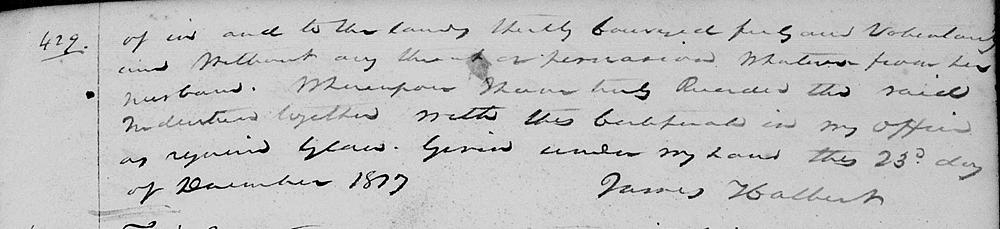 429.
of in and to the lands thereby Conveyed freely and Voluntarily
and Without any threat or persuasion Whatever from her
husband. Whereupon I have truly Recorded the said
Indenture together with this Certificate in my office
as required by Law. Given under my hand this 23d day
of December 1817
James Halbert